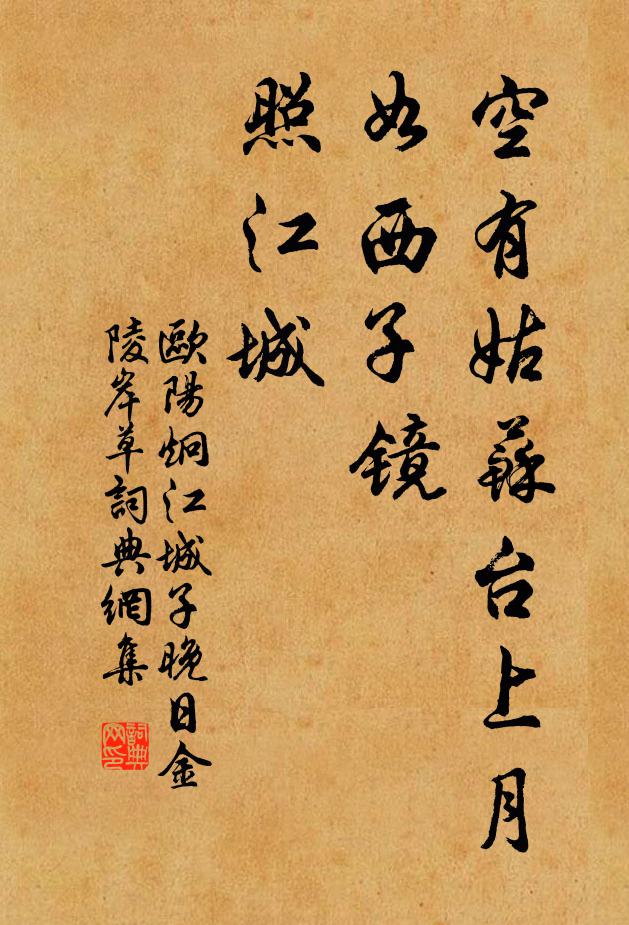 空有姑蘇台上月
如西子镜
照江城
歐陽炯江城子晚日金
陵岸草詞典網集
詞典
网印